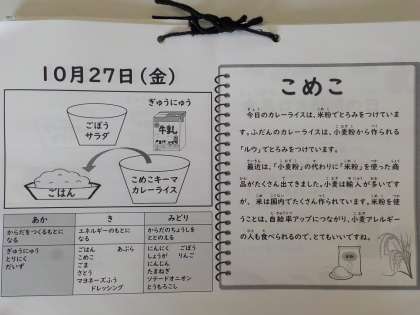 10月27日(金)
ぎゅうにゅう
牛乳
ごぼう
サラダ
ごはん
こめこキーマ
カレーライス
あか
き
みどり
からだをつくるもとに
なる
エネルギーのもとに
なる
からだのちょうしを
ととのえる
ぎゅうにゅう
とりにく
だいず
ごはん　あぶら
こめこ
ごま
さとう
マヨネーズふう
ドレッシング
にんにく　ごぼう
しょうが　りんご
にんじん
たまねぎ
ソテードオニオン
とうもろこし
こめこ
今日のカレーライスは、米粉でとろみをつけていま
す。ふだんのカレーライスは、小麦粉から作られる
「ルウ」でとろみをつけています。
最近は、「小麦粉」の代わりに「米粉」を使った商
品がたくさん出てきました。小麦は輸入が多いです
が、米は国内でたくさん作られています。米粉を使
うことは、自給率アップにつながり、小麦アレルギー
の人も食べられるので、とてもいいですね。